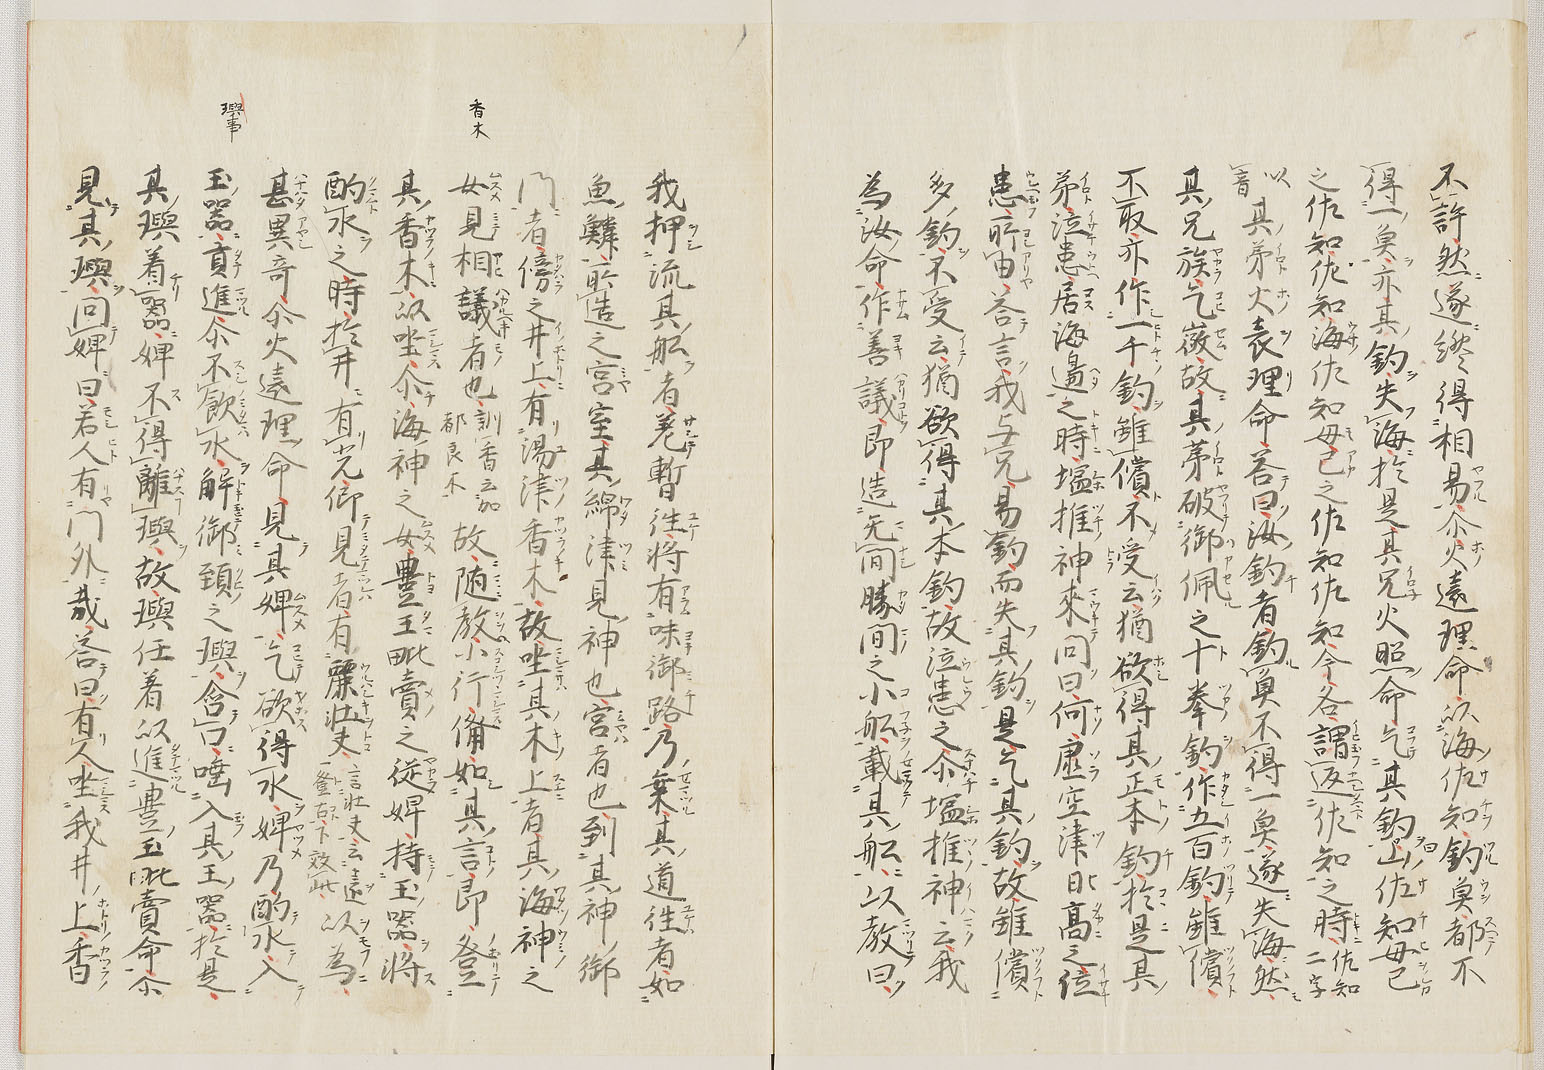 不許然遂纔得相易尒火遠理命以海佐知釣魚都不
得一魚亦其釣失海於是其兄火照命乞其釣曰山佐知母己
之佐知佐知海佐知母己之佐知佐知今各謂返佐知之時佐知二字
以音其弟火袁理命答曰汝釣者釣魚不得一魚遂失海然
其兄族乞徴故其弟破御佩之十拳釣作五百釣雖償
不取亦作一千釣雖償不受云猶欲得其正本釣於是其
弟泣患居海邊之時塩推神來問曰何虚空津日高之位
患所由答言我与兄易釣而失其釣是乞其釣故雖償
多釣不受云猶欲得其本釣故泣患之尒塩推神云我
為汝命作善議即造无間勝間之小舩載其舩以教曰
我押流其舩者差暫往将有味御路乃乗其道往者如
魚鱗所造之宮室其綿津見神也宮者也到其神御
門者傍之井上有湯津香木故坐其木上者其海神之
女見相議者也訓香云加都良木故随教小行備如其言即登
其香木以坐尒海神之女豊玉毗賣之従婢持玉器将
酌水之時於井有光仰見者有麗壮夫言壮夫云遠登古下效此以為
甚異奇尒火遠理命見其婢乞欲得水婢乃酌水入
玉器貢進尒不飲水解御頚之璵含口唾入其玉器於是
其璵着器婢不得離璵故璵任着以進豊玉毗賣命尒
見其璵問婢曰若人有門外哉答曰有人坐我井上香
香木
璵事